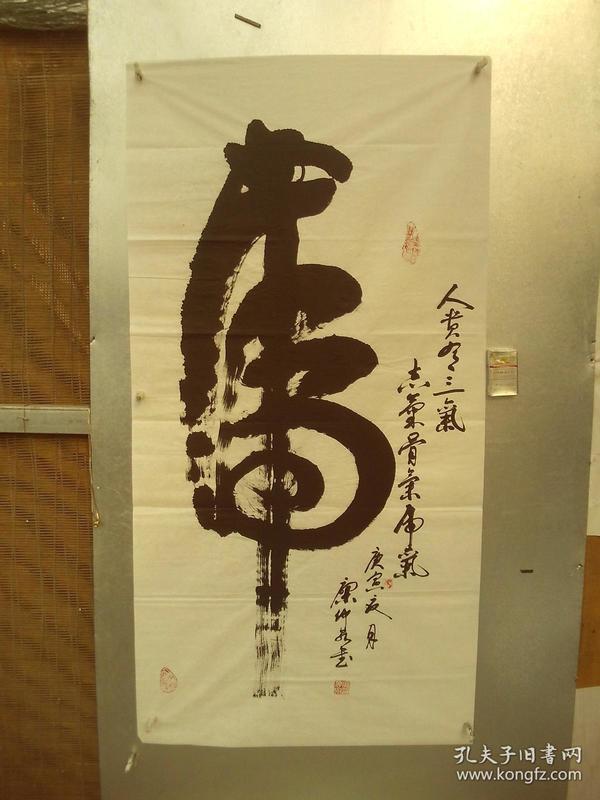 虎
人贵有三氣
志氣骨氣虎氣
庚寅夏月
康仲
孔夫子旧書网
www.kongfz.com